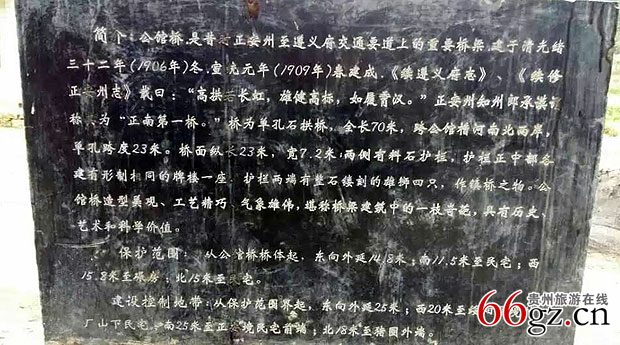 简介：公馆桥，是昔日正安州至遵义府交通要道上的重要桥梁，建于清光绪
三十二年（1906年）冬，宣统元年（1909年）春建成，《续遵义府志》、《续修
正安州志》载曰：“高拱若长虹，雄健高标，如履霄汉。”正安州知州郎承谟
称 为“正南第一桥。”桥为单孔石拱桥，全长70米，跨公馆 河南北两岸，
单孔跨度23米。桥面纵长23米，宽7.2米；两侧有料石护栏，护栏正中部各
建有形制相同的牌楼一座，护栏两端有整石镂刻的雄狮四只，作镇桥之物。公
馆桥造型美观、工艺精巧、气象雄伟，堪称桥梁建筑中的一枝奇葩，具有历史、
艺术和科学价值。
保护范围：从公馆桥桥体起，东向外延14.8米；南11.5米至民宅；西
15.8米至 ；北15米至民宅。
建设控制地带：从保护范围界起，东向外延25米；西20米至
厂山下民宅；南25米至正 民宅前墙；北18米至猪圈外墙。
66gz.cn
贵州旅游在线